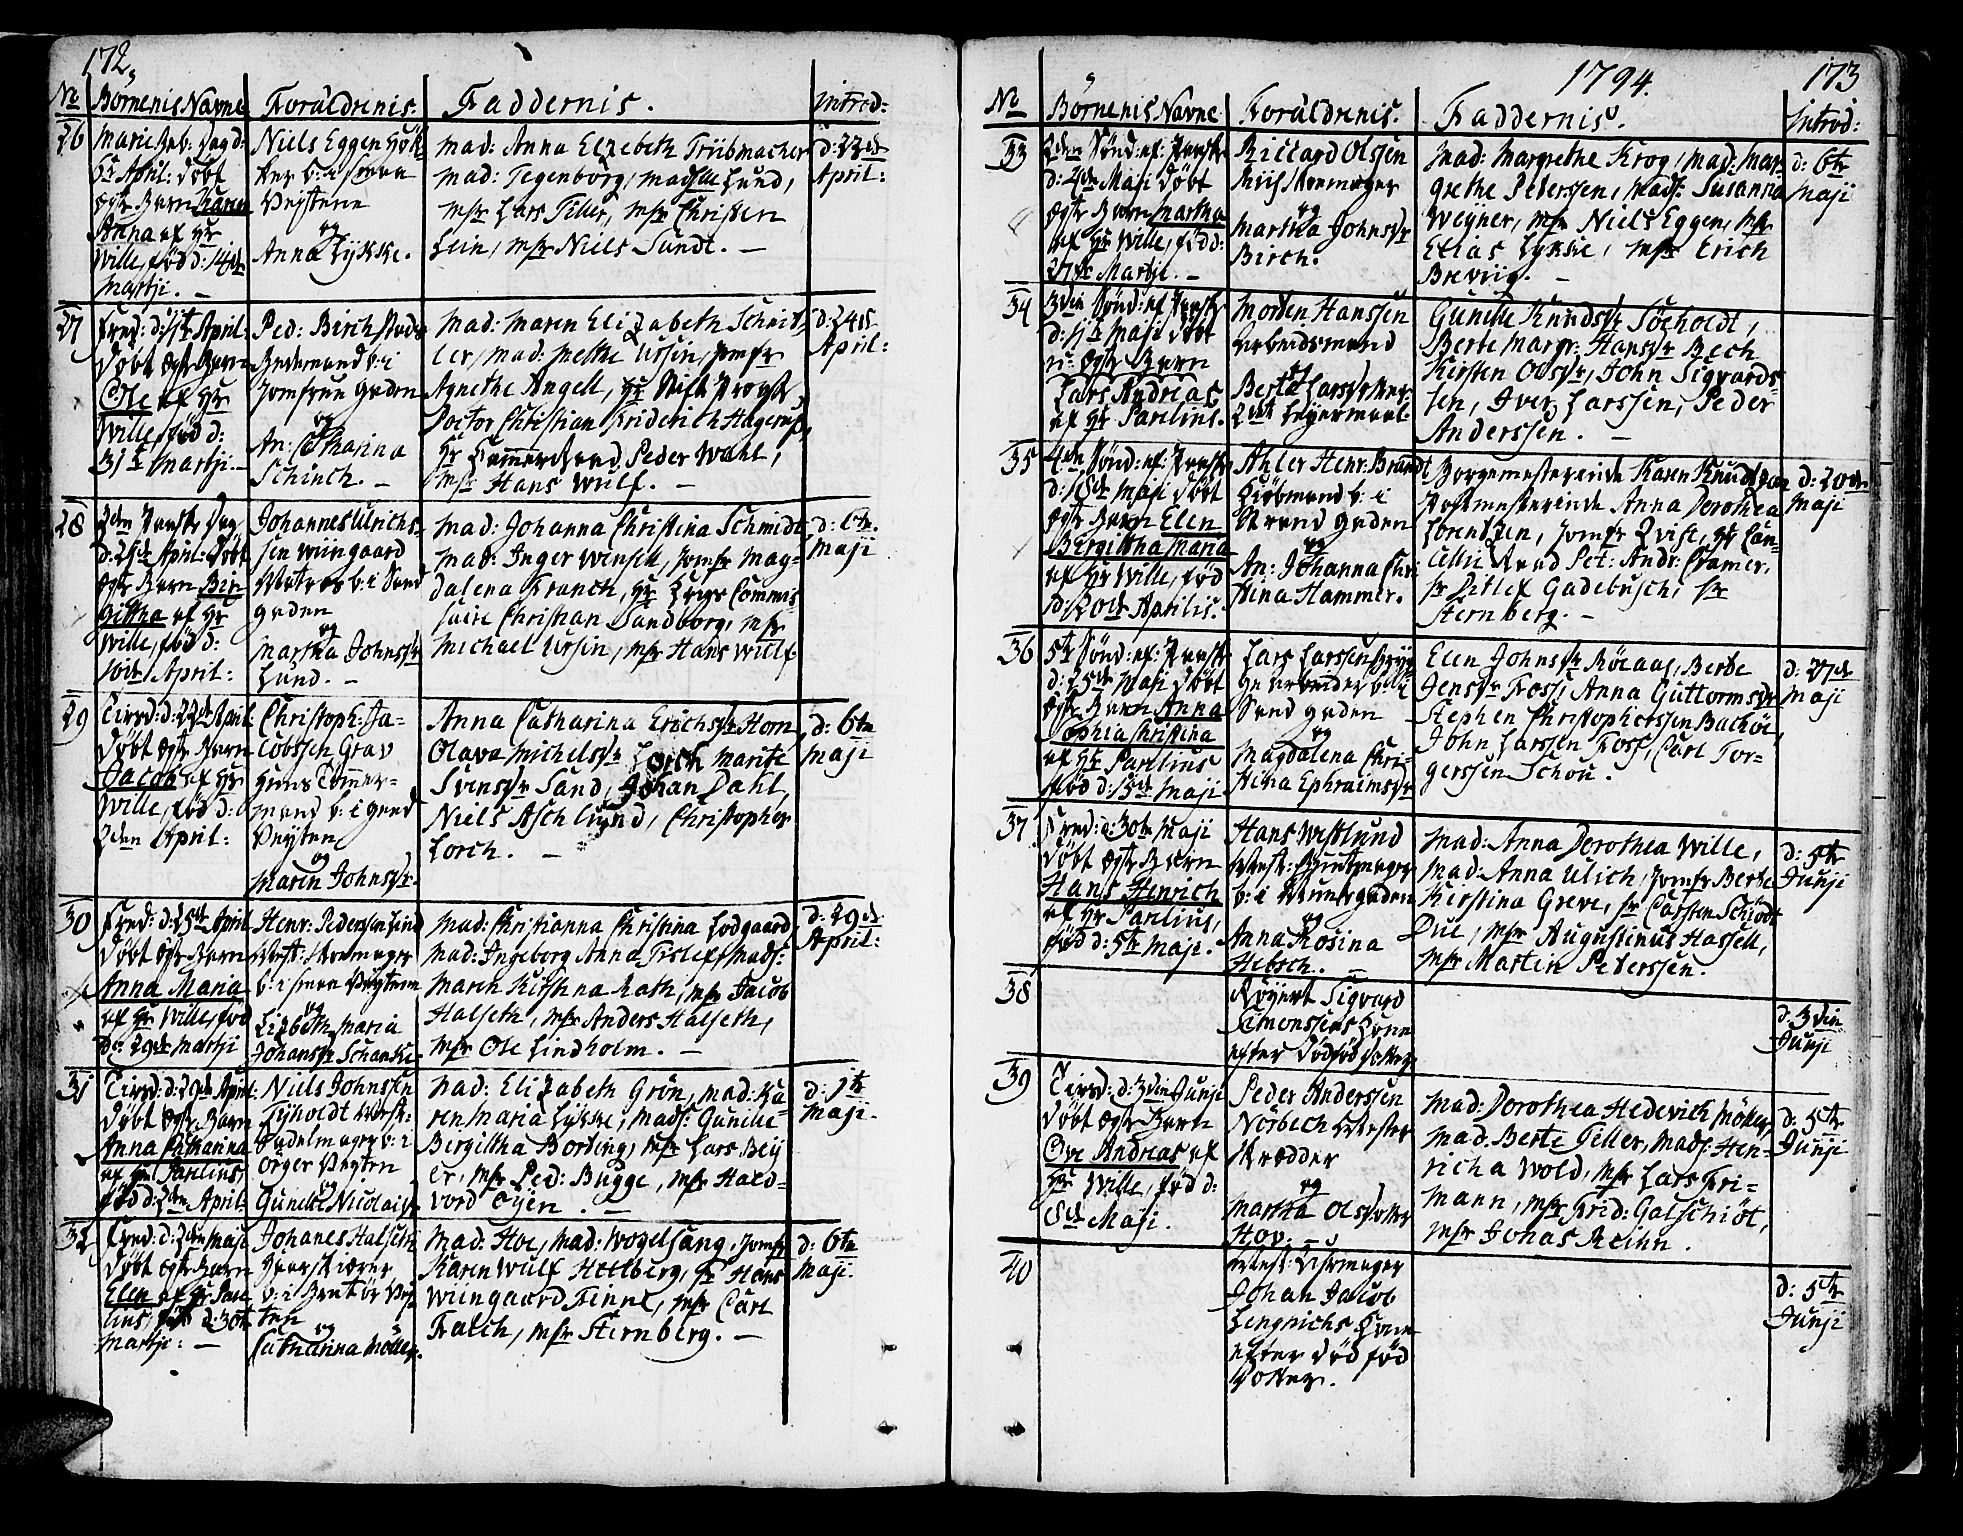 172,
No Börnenis Navne Forældrenis. Faddernis. introd:
26
Mariæ Beb: Dag d:
6te April: döbt
ægte Barn Karen
Anna af Hr
Wille, föd d: 14de
Martji. —
Niels Eggen Hök-
ker b: i Smaa
Veÿtene
og
Anna Lykke.
Mad: Anna Elzebeth Trübmacher
Mad: Tegenborg, Madslle Lund,
Msr Lars Tiller, Msr Christen
Lein, Msr Niels Sundt. —
d: 22de
April:
27
Fred: d: 11te April:
döbt ægte Barn
Ole af Hr
Wille, föd d:
31te Martji. —
Ped: Birch
b: i
Jomfrue Gaden
og
An: Catharina
Schinck. —
Mad: Maren Elizabeth Schnit-
ler, Mad: Mette Ursin, Jomfr
Agnethe Angell, Hr Stift Provst,
Doctor Christian Friderich Hagerup,
Hr Cammerraad Peder Wahl,
Msr Hans Wulf. —
d: 24de
April:
28
2den Paaske Dag
d: 21de April: döbt
ægte Barn Bir
gittha af Hr
Wille, föd d:
10de April:
Johannes Ulrichs-
sen Wiingaard
Matros b: i Sand
gaden
og
Martha Johnsdr
Lund. —
Mad: Johanna Christina Schmidt,
Mad: Inger Winsell, Jomfr Mag-
dalena Franck, Hr Krigs Commis
saire Christian Sandborg, Msr
Michael Ursin, Msr Hans Wulf
d: 6te
Maji
29
Tirsd: d: 22de April
döbt ægte Barn
Jacob af Hr
Wille, föd d:
2den April:
Christoph: Ja-
cobsen Grav
Huus Tömmer-
mand b: i
Veyten
og
Maren Johnsdr.
Anna Catharina Erichsdr Horn
Olava Michelsdr Lorck Marite
Svensdr Sand, Johan Dahl,
Niels Asch Lund, Christopher
Lorck. —
d: 6te
Maji
30
Fred: d: 25de April
döbt ægte Barn
Anna Maria
af Hr Wille, föd
d: 29de Martji
Henr: Pedersen Lind
Mest: Skomager
b: i Smaa Veytene
og
Lizbeth Maria
Johansdr Schanke
Mad: Christianna Christina Lodgaard
Mad: Ingeborg Anna Tislef, Mads:
Maren Kirstina Rath, Msr Jacob
Halseth, Msr Anders Halseth,
Msr Ole Lindholm. —
d: 29de
April:
31
Tirsd: d: 29de April:
döbt ægte Barn
Anna Catharina
af Hr Parelius,
föd d: 2den April
Niels Johnsen
Tyholdt Mest:
Sadelmager b: i
Örger Veyten
og
Gunild Nicolaisdr
Mad: Elizabeth Grön, Mad: Ka-
ren Maria Lykke, Mads: Gunille
Bergittha Bording, Msr Lars Beÿ
er, Msr Ped: Bugge, Msr Hald-
vord Öÿen. —
d: 1te
Maji.
32
Fred: d: 2den Maji
döbt ægte Barn
Elen af Hr Pare
lius, föd d: 30te
Martji: —
Johanes Halseth
b: i
ten
og
Cathanna Möller.
Mad: Hoe, Mad: Wogelsang, Jomfr
Karen Wulf Hetlberg, Sr Hans
Wiingaard Finne, Msr Carl
Falch, Msr Sternberg. —
d: 6te
Maji.
1794. 173
No Börnenis Navne Forældrenis. Faddernis. Introd:
33
2den Sönd: ef: Paaske
d: 4de Maji döbt
ægte Barn Martha
af Hr Wille, föd d:
27de Martji. —
Riccard Olssen
Riis Skomager
og
Martha Johnsdr
Birch.
Mad: Margrethe Krog, Mad: Mar-
grethe Peterssen, Mads: Susanna
Weÿner, Msr Niels Eggen, Msr
Elias Lykke, Msr Erich
Breviig. —
d: 6te
Maji
34
3die Sönd: ef: Paaske
d: 11te Maji döbt
u: ægte Barn
Lars Andreas
af Hr Parelius.
Morten Hanssen
Arbeidsmand
og
Berta Larsdr
2det Leyermaal
Gunille Knudsdr Söeholdt,
Berte Margr: Hansdr Bech
Kirsten Olsdr, John Sigvards
sen, Iver Larssen, Peder
Anderssen. —
35
4de Sönd: ef: Paaske
d: 18de Maji döbt
ægte Barn Elen
Bergittha Maria
af Hr Wille, föd
d: 20de Aprilis.
Ahler Henr: Brandt
Kiöbmand b: i
Strand Gaden
og
An: Johanna Chri
stina Hammer.
Borgemesterinde Karen Knudtzon
Postmesterinde Anna Dorothea
Lorentzen, Jomfr Qvist, Hr Can-
cellie Raad Pet: Andr: Cramer,
Sr Ditlef Gadebusch, Sr
Sternberg. —
d: 20de
Maji
36
5te Sönd: ef: Paaske
d: 25de Maji döbt
ægte Barn Anna
Sophia Christina
af Hr Parelius
föd d: 15de Maji
Lars Larssen Bryg
ge arbeider b: i
Sand gaden
og
Magdalena Chri-
stina Ephraimsdr
Elen Johnsdr Röraas, Berte
Jensdr Foss, Anna Guttormsdr
Stephen Christopherssen Backöe,
John Larssen Foss, Carl Tor-
gerssen Schou.
d: 27de
Maji
37
Fred: d: 30te Maji
döbt ægte Barn
Hans Henrich
af Hr Parelius,
föd d: 5te Maji. —
Hans Westlund
Mest: Buntmager
b: i Munkegaden
og
Anna Rosina
Hebsch. —
Mad: Anna Dorothea Wille,
Mad: Anna Ulich, Jomfr Berte
Kirstina Greve, Sr Carsten Schiödt
Due, Msr Augustinus Hassell,
Msr Martin Peterssen.
d: 5te
Junji
38
Röyert Sigvard
Simonssens Kone
efter dödföd Datter
d: 3die
Junji
39
Tirsd: d: 3die Junji
döbt ægte Barn
Ove Andreas af
Hr Wille, föd d:
8de Maji.
Peder Anderssen
Nörbech Mester
Skredder
og
Martha Olsdatter
Hov. —
Mad: Dorothea Hedevich Möller
Mad: Berte Tiller, Mads: Hen-
richa Wold, Msr Lars Fri-
mann, Msr Frid: Galschiöt,
Msr Johas Reihn.
d: 5te
Junji
40
Mest:
Johan Jacob
Lengnichs Kone
efter död föd
Datter.
d: 5te
Junji